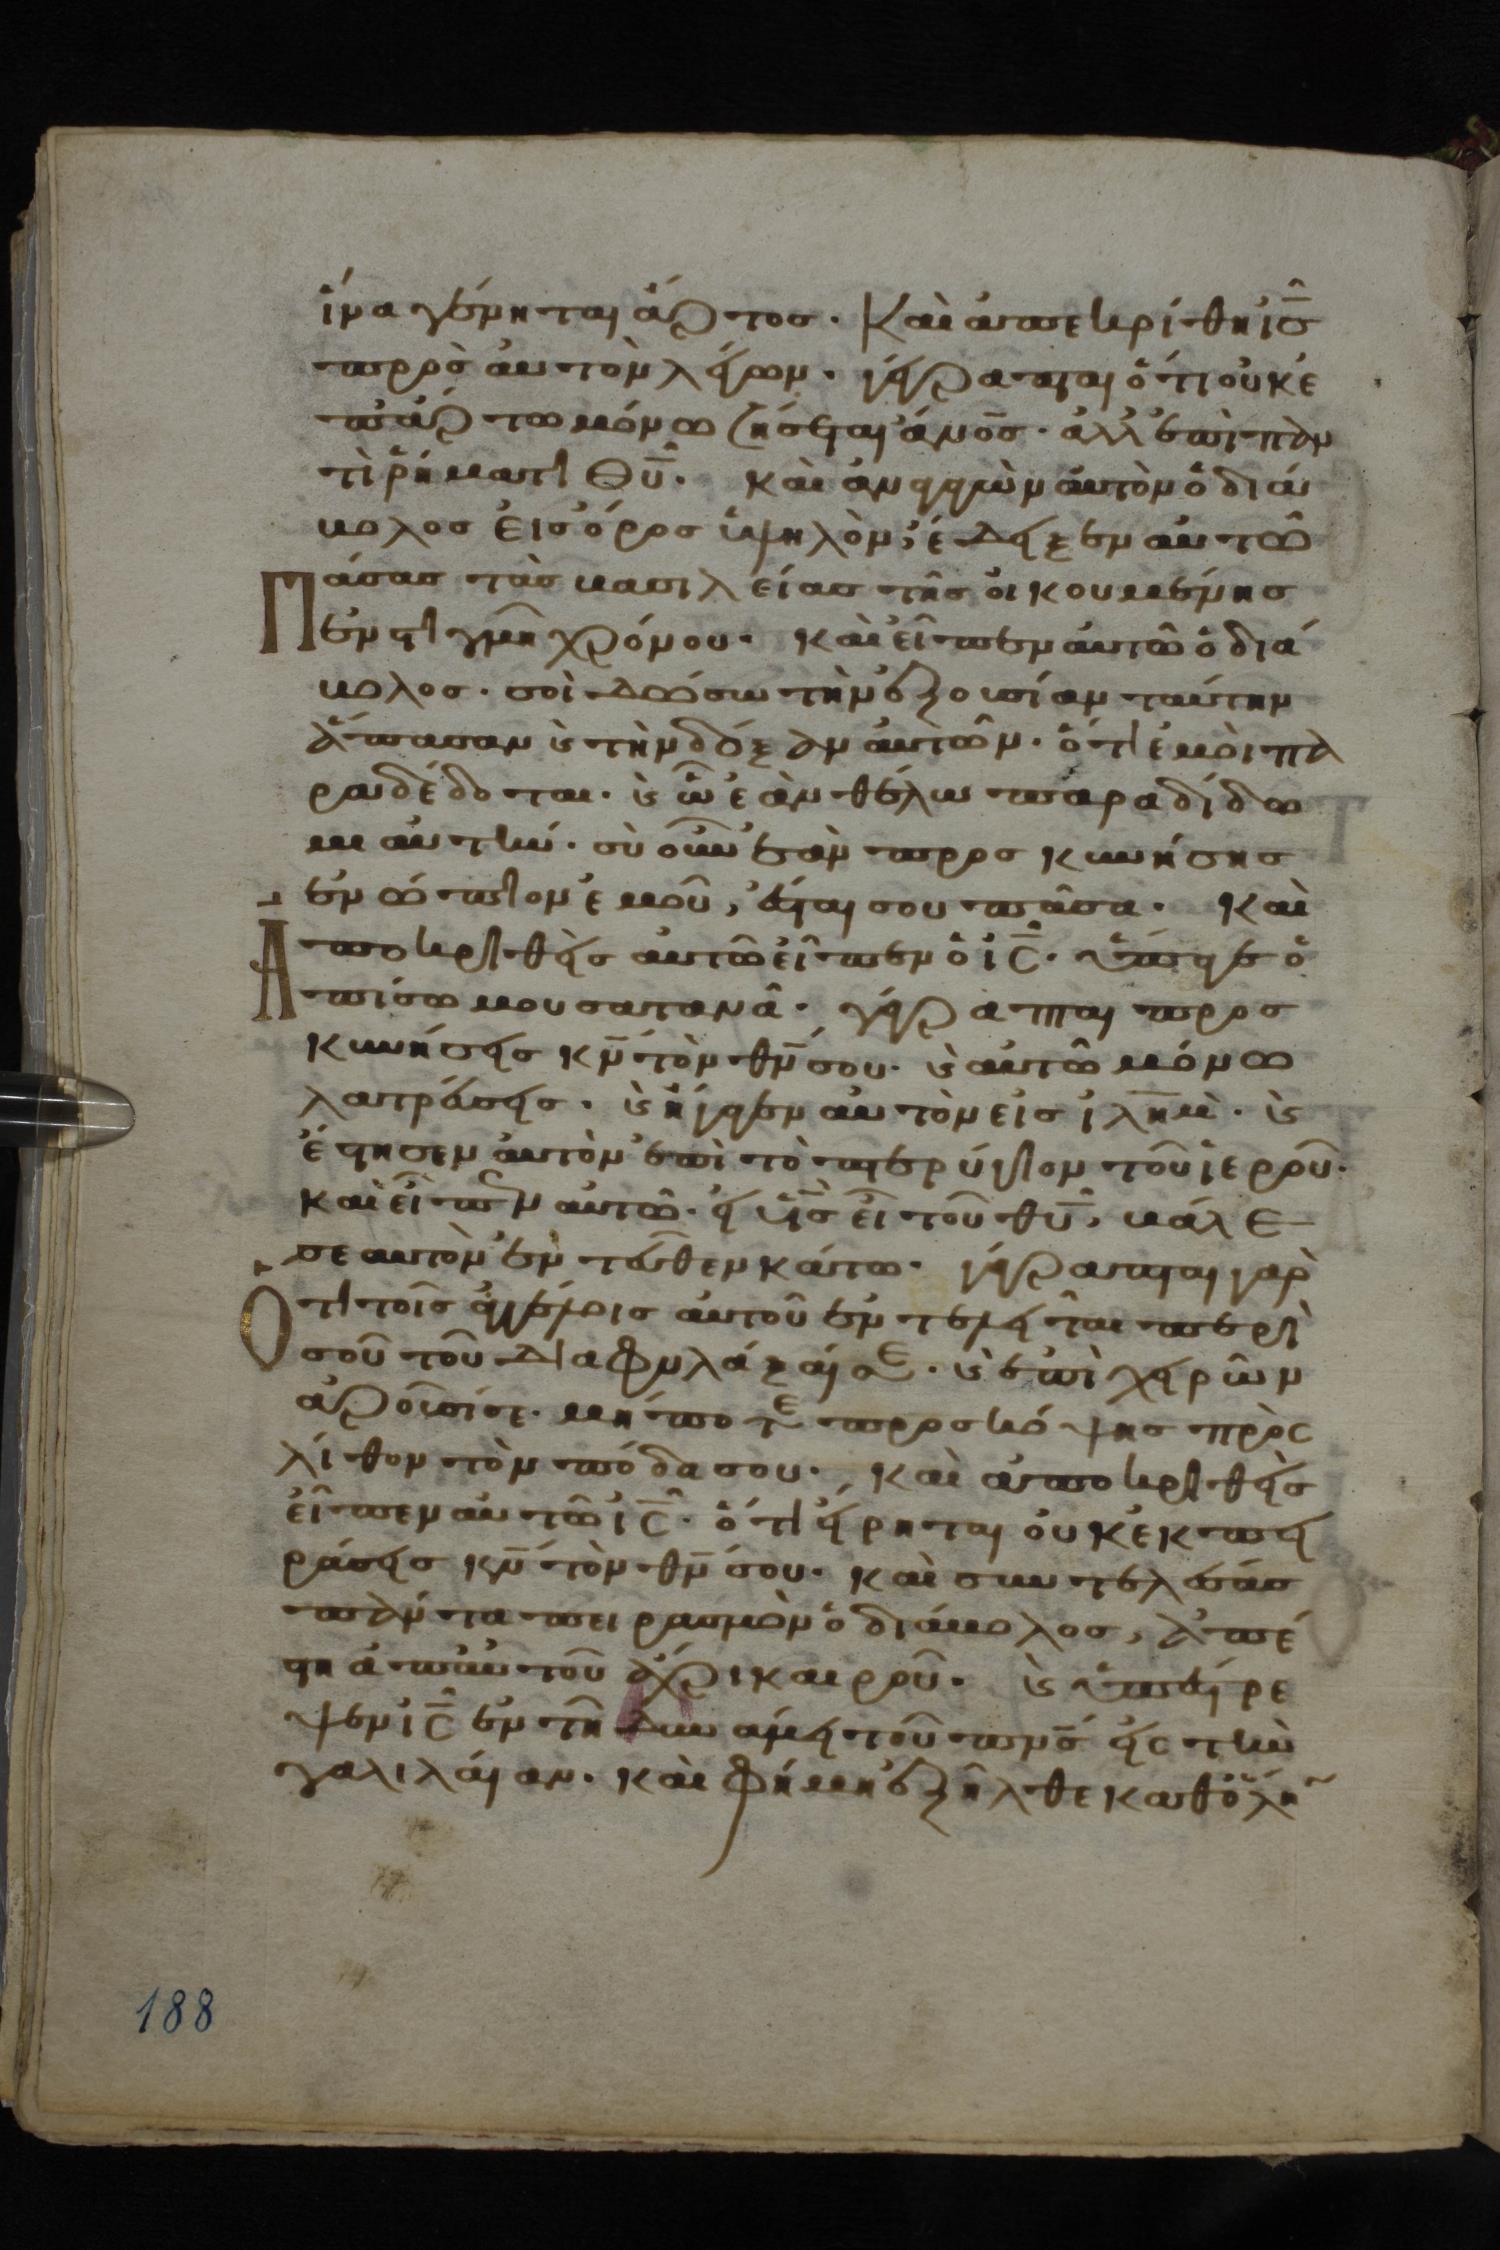 ἵνα γένηται ἄρτος. Καὶ ἀπεκρίθη ἰς̅
πρὸς ἀυτὸν λέγων. γέγραπται ὅτι οὐκ ἐ
π' ἄρτω μόνω ζήσεται ἄνο̅ς. ἀλλ' ἐπὶ παν
τὶ ῥήματι θυ̅. καὶ ἀναγαγὼν ἀυτὸν ὁ διά
βολος ἐις ὄρος ὑψηλὸν, ἔδειξεν αὐτῶ
πάσας τὰς βασιλείας τῆς οἰκουμένης
ἐν στιγμῆ χρόνου. καὶ εἶπεν ἀυτῶ ὁ διά
βολος. σοὶ δώσω τὴν ἐξουσίαν ταύτην
ἅπασαν ϗ τὴν δόξαν ἀυτῶν. ὅτι ἐμοὶ πα
ραδέδοται. ϗ ὧ ἐὰν θέλω παραδίδω
μι ἀυτήν. σὺ οὖν ἐὰν προσκυνήσης
ἐνώπιον ἐμοῦ, ἔσται σου πᾶσα. Καὶ
ἀποκριθεὶς ἀυτῶ εἶπεν ὁ ἰς̅. ὕπαγε ὀ
πίσω μου σατανᾶ. γέγραπται προσ
κυνήσεις κν̅ τὸν θν̅ σου. ϗ ἀυτῶ μόνω
λατρεύσεις. ϗ ἤγαγεν ἀυτὸν εἰς ἰλη̅μ. ϗ
ἔστησεν ἀυτὸν ἐπὶ τὸ πτερύγιον τοῦ ἱεροῦ.
καὶ εἶπεν ἀυτῶ. εἰ υἱὸς εἶ τοῦ θυ̅, βάλε
σεαυτὸν ἐντεῦθεν κάτω. γέγραπται γὰρ
ὅτι τοῖς ἀγγέλοις ἀυτοῦ ἐντελεῖται περὶ
σοῦ τοῦ διαφυλάξαι σε. ϗ ἐπὶ χειρῶν
ἀροῦσί σε. μήποτε προσκόψης πρὸς
λίθον τὸν πόδα σου. καὶ ἀποκριθεὶς
εἶπεν ἀυτῶ ἰς̅. ὅτι εἴρηται οὐκ ἐκπει
ράσεις κν̅ τὸν θν̅ σου. καὶ συντελέσας
πάντα πειρασμὸν ὁ διάβολος, ἀπέ
στη ἀπ' ἀυτοῦ ἄχρι καιροῦ. ϗ ὑπέστρε
ψεν ἰς̅ ἐν τῆ δυνάμει τοῦ πνς̅ εἰς τὴν
γαλιλαίαν. καὶ φήμη ἐξῆλθε καθ' ὅλη
188